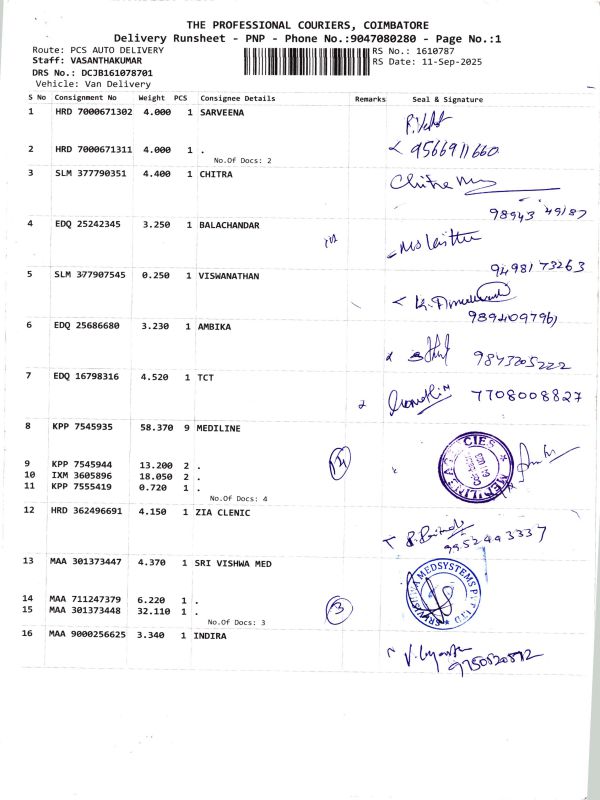 THE PROFESSIONAL COURIERS, COIMBATORE
Delivery Runsheet - PNP - Phone No.:9047080280 - Page No.:1
Route: PCS AUTO DELIVERY RS No.: 1610787
Staff: VASANTHAKUMAR RS Date: 11-Sep-2025
DRS No.: DCJB161078701
Vehicle: Van Delivery
S No Consignment No Weight PCS Consignee Details Remarks Seal & Signature
1 HRD 7000671302 4.000 1 SARVEENA
2 HRD 7000671311 4.000 1 . 9566911660
No.Of Docs: 2
3 SLM 377790351 4.400 1 CHITRA Chitra
98943 49187
4 EDQ 25242345 3.250 1 BALACHANDAR
9498173263
5 SLM 377907545 0.250 1 VISWANATHAN
9894109796
6 EDQ 25686680 3.230 1 AMBIKA
9843205222
7 EDQ 16798316 4.520 1 TCT
7708008827
8 KPP 7545935 58.370 9 MEDILINE
9 KPP 7545944 13.200 2 .
10 IXM 3605896 18.050 2 .
11 KPP 7555419 0.720 1 .
No.Of Docs: 4
12 HRD 362496691 4.150 1 ZIA CLENIC
9952443337
13 MAA 301373447 4.370 1 SRI VISHWA MED
MEDSYSTEMS PVT LTD
14 MAA 711247379 6.220 1 .
15 MAA 301373448 32.110 1 . 3
No.Of Docs: 3
16 MAA 9000256625 3.340 1 INDIRA